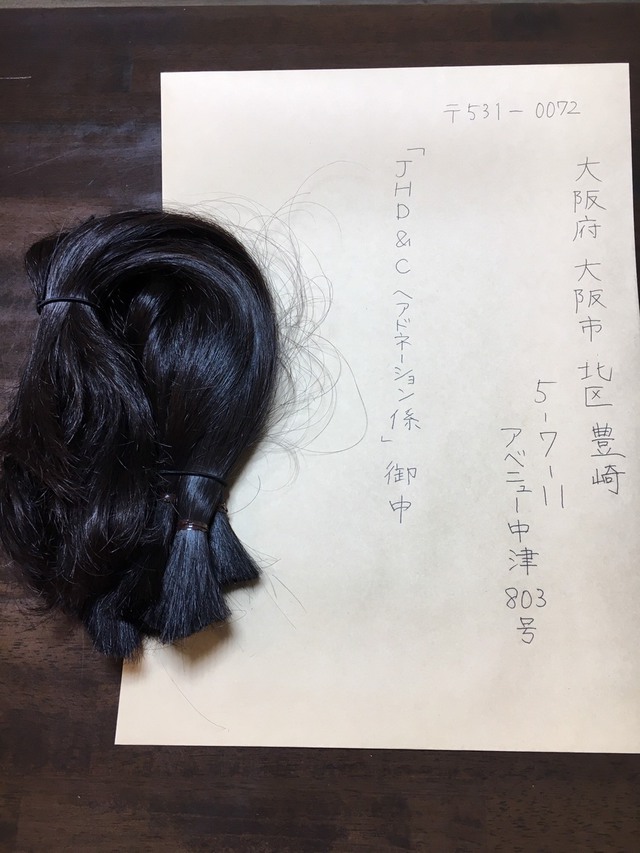 〒531-0072
大阪府 大阪市 北区 豊崎
5-7-11
アベニュー中津 803号
「JHD&C ヘアドネーション係」御中